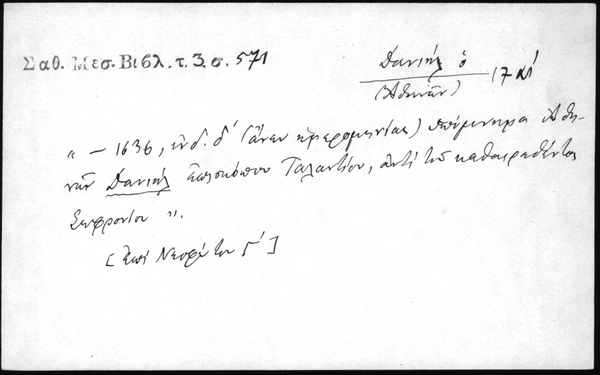 Σαθ. Μεσ. Βιβλ. τ. 3. σ. 571
Δανιήλ ὁ
(Ἀθηνῶν)
17 αἰ
" — 1636, ἰνδ. δ' (ἄνευ ἡμερομηνίας) ὑπόμνημα Ἀθη-
νῶν Δανιήλ ἐπισκόπου Ταλαντίου, ἀντὶ τοῦ καθαιρεθέντος
Σωφρονίου ".
[ἐπὶ Νεοφύτου Γ']